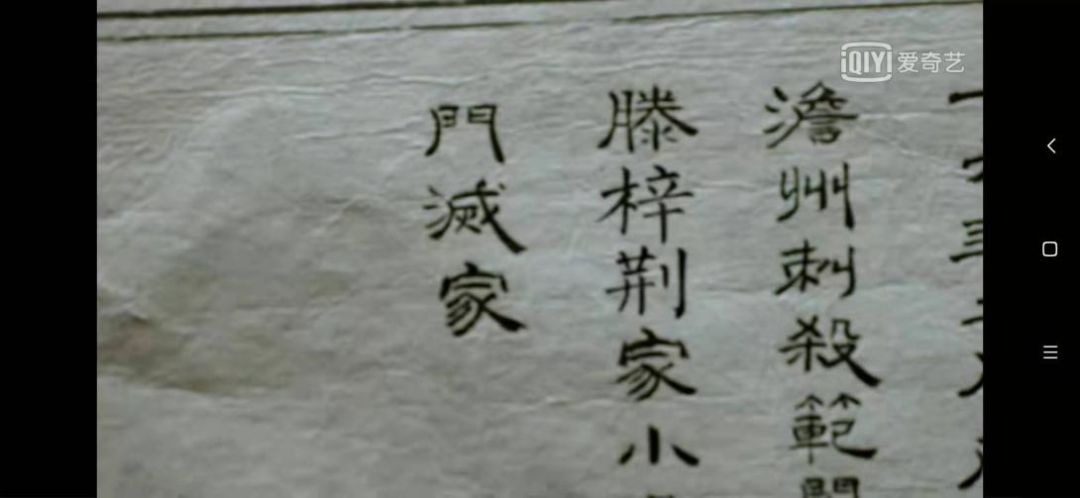 iQIYI 爱奇艺
澹州刺殺範
滕梓荆家小
門滅家